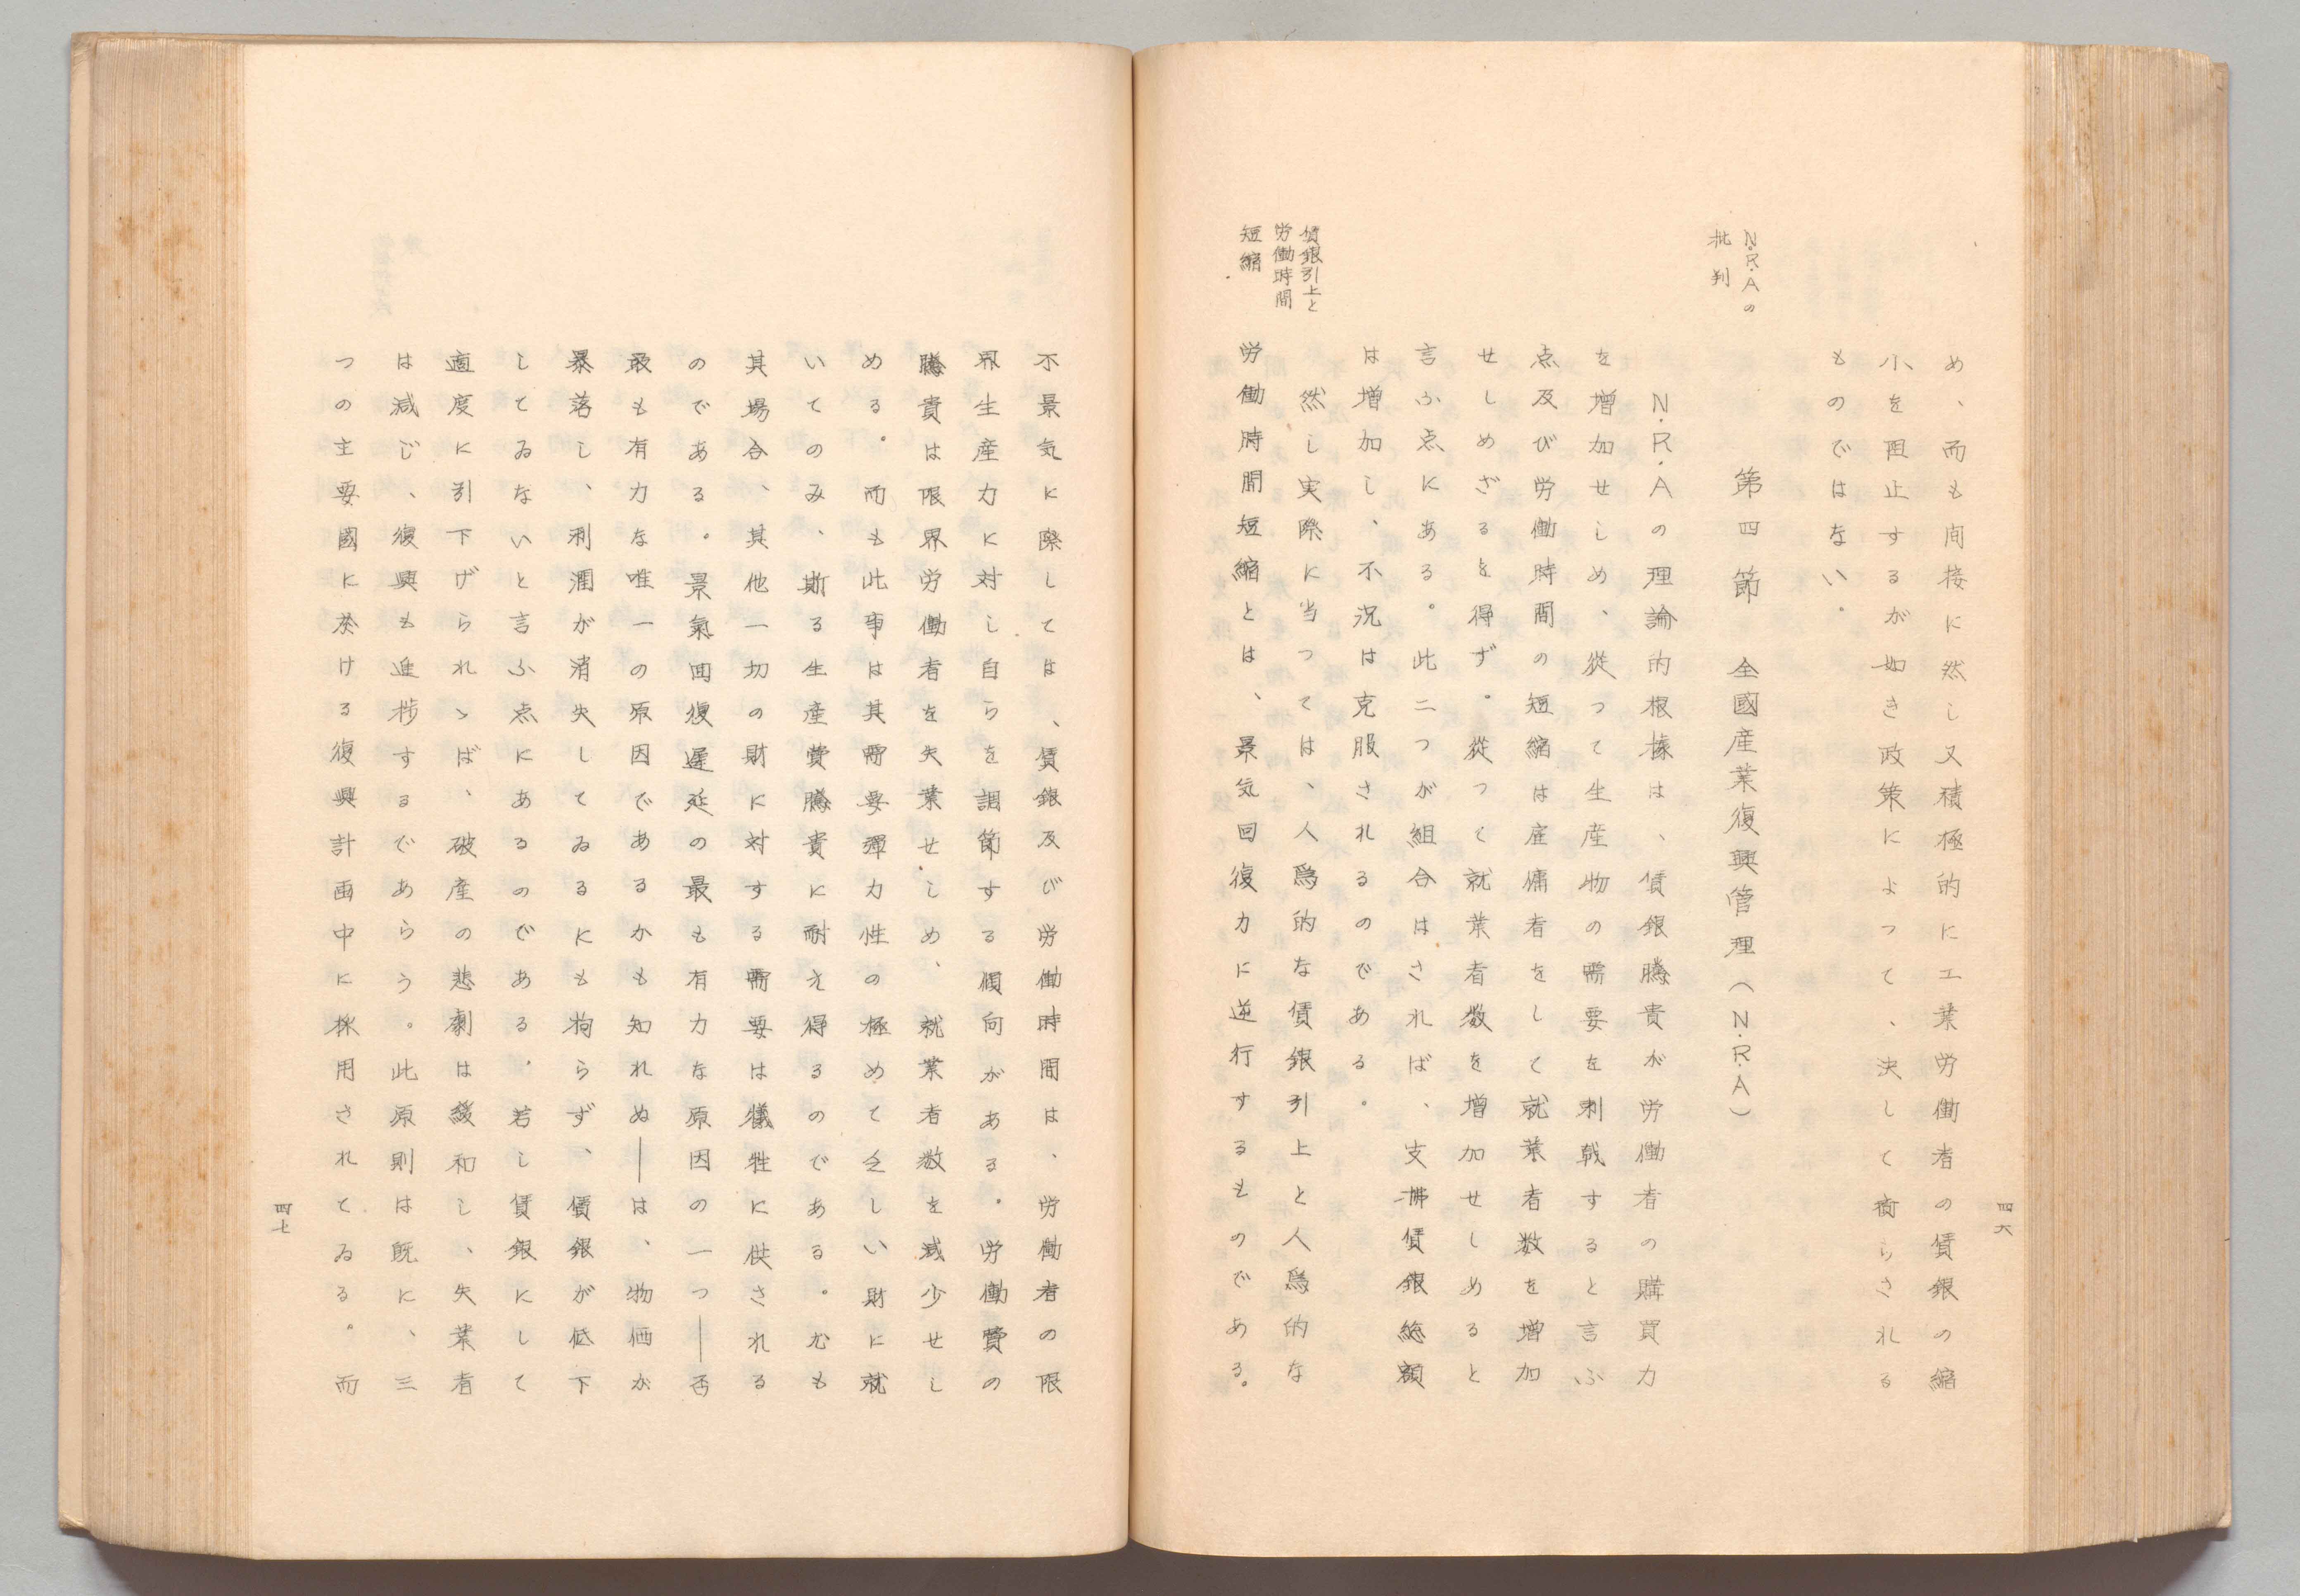 四六
め、而も间接に然し又積極的に工業労働者の賃銀の縮
小を阻止するが如き政策によって、決して齎らされる
ものではない。
N.R.Aの
批判
第四節 全國産業復興管理(N.R.A)
N.R.Aの理論的根據は、賃銀騰貴が労働者の購買力
を増加せしめ、從つて生産物の需要を刺戟すると言ふ
点及び労働時間の短縮は雇傭者をして就業者数を増加
せしめざるを得ず。從つて就業者数を増加せしめると
言ふ点にある。此二つが組合はされば、支拂賃銀総額
は増加し、不況は克服されるのである。
賃銀引上と
労働時間
短縮
然し実際に当つては、人爲的な賃銀引上と人爲的な
労働時間短縮とは、景気回復力に逆行するものである。
不景気に際しては、賃銀及び労働時間は、労働者の限
界生産力に対し自らを調節する傾向がある。労働費の
騰貴は限界労働者を失業せしめ、就業者数を減少せし
める。而も此事は其需要彈力性の極めて乏しい財に就
いてのみ、斯る生産費騰貴に耐え得るのである。尤も
其場合、其他一切の財に対する需要は犠牲に供される
のである。景氣回復遅延の最も有力な原因の一つ―否
最も有力な唯一の原因であるかも知れぬ―は、物価が
暴落し、利潤が消失してゐるにも拘らず、賃銀が低下
してゐないと言ふ点にあるのである。若し賃銀にして
適度に引下げられゝば、破産の悲劇は緩和し、失業者
は減じ、復興も進捗するであらう。此原則は既に、三
つの主要國に於ける復興計画中に採用されてゐる。而
四七